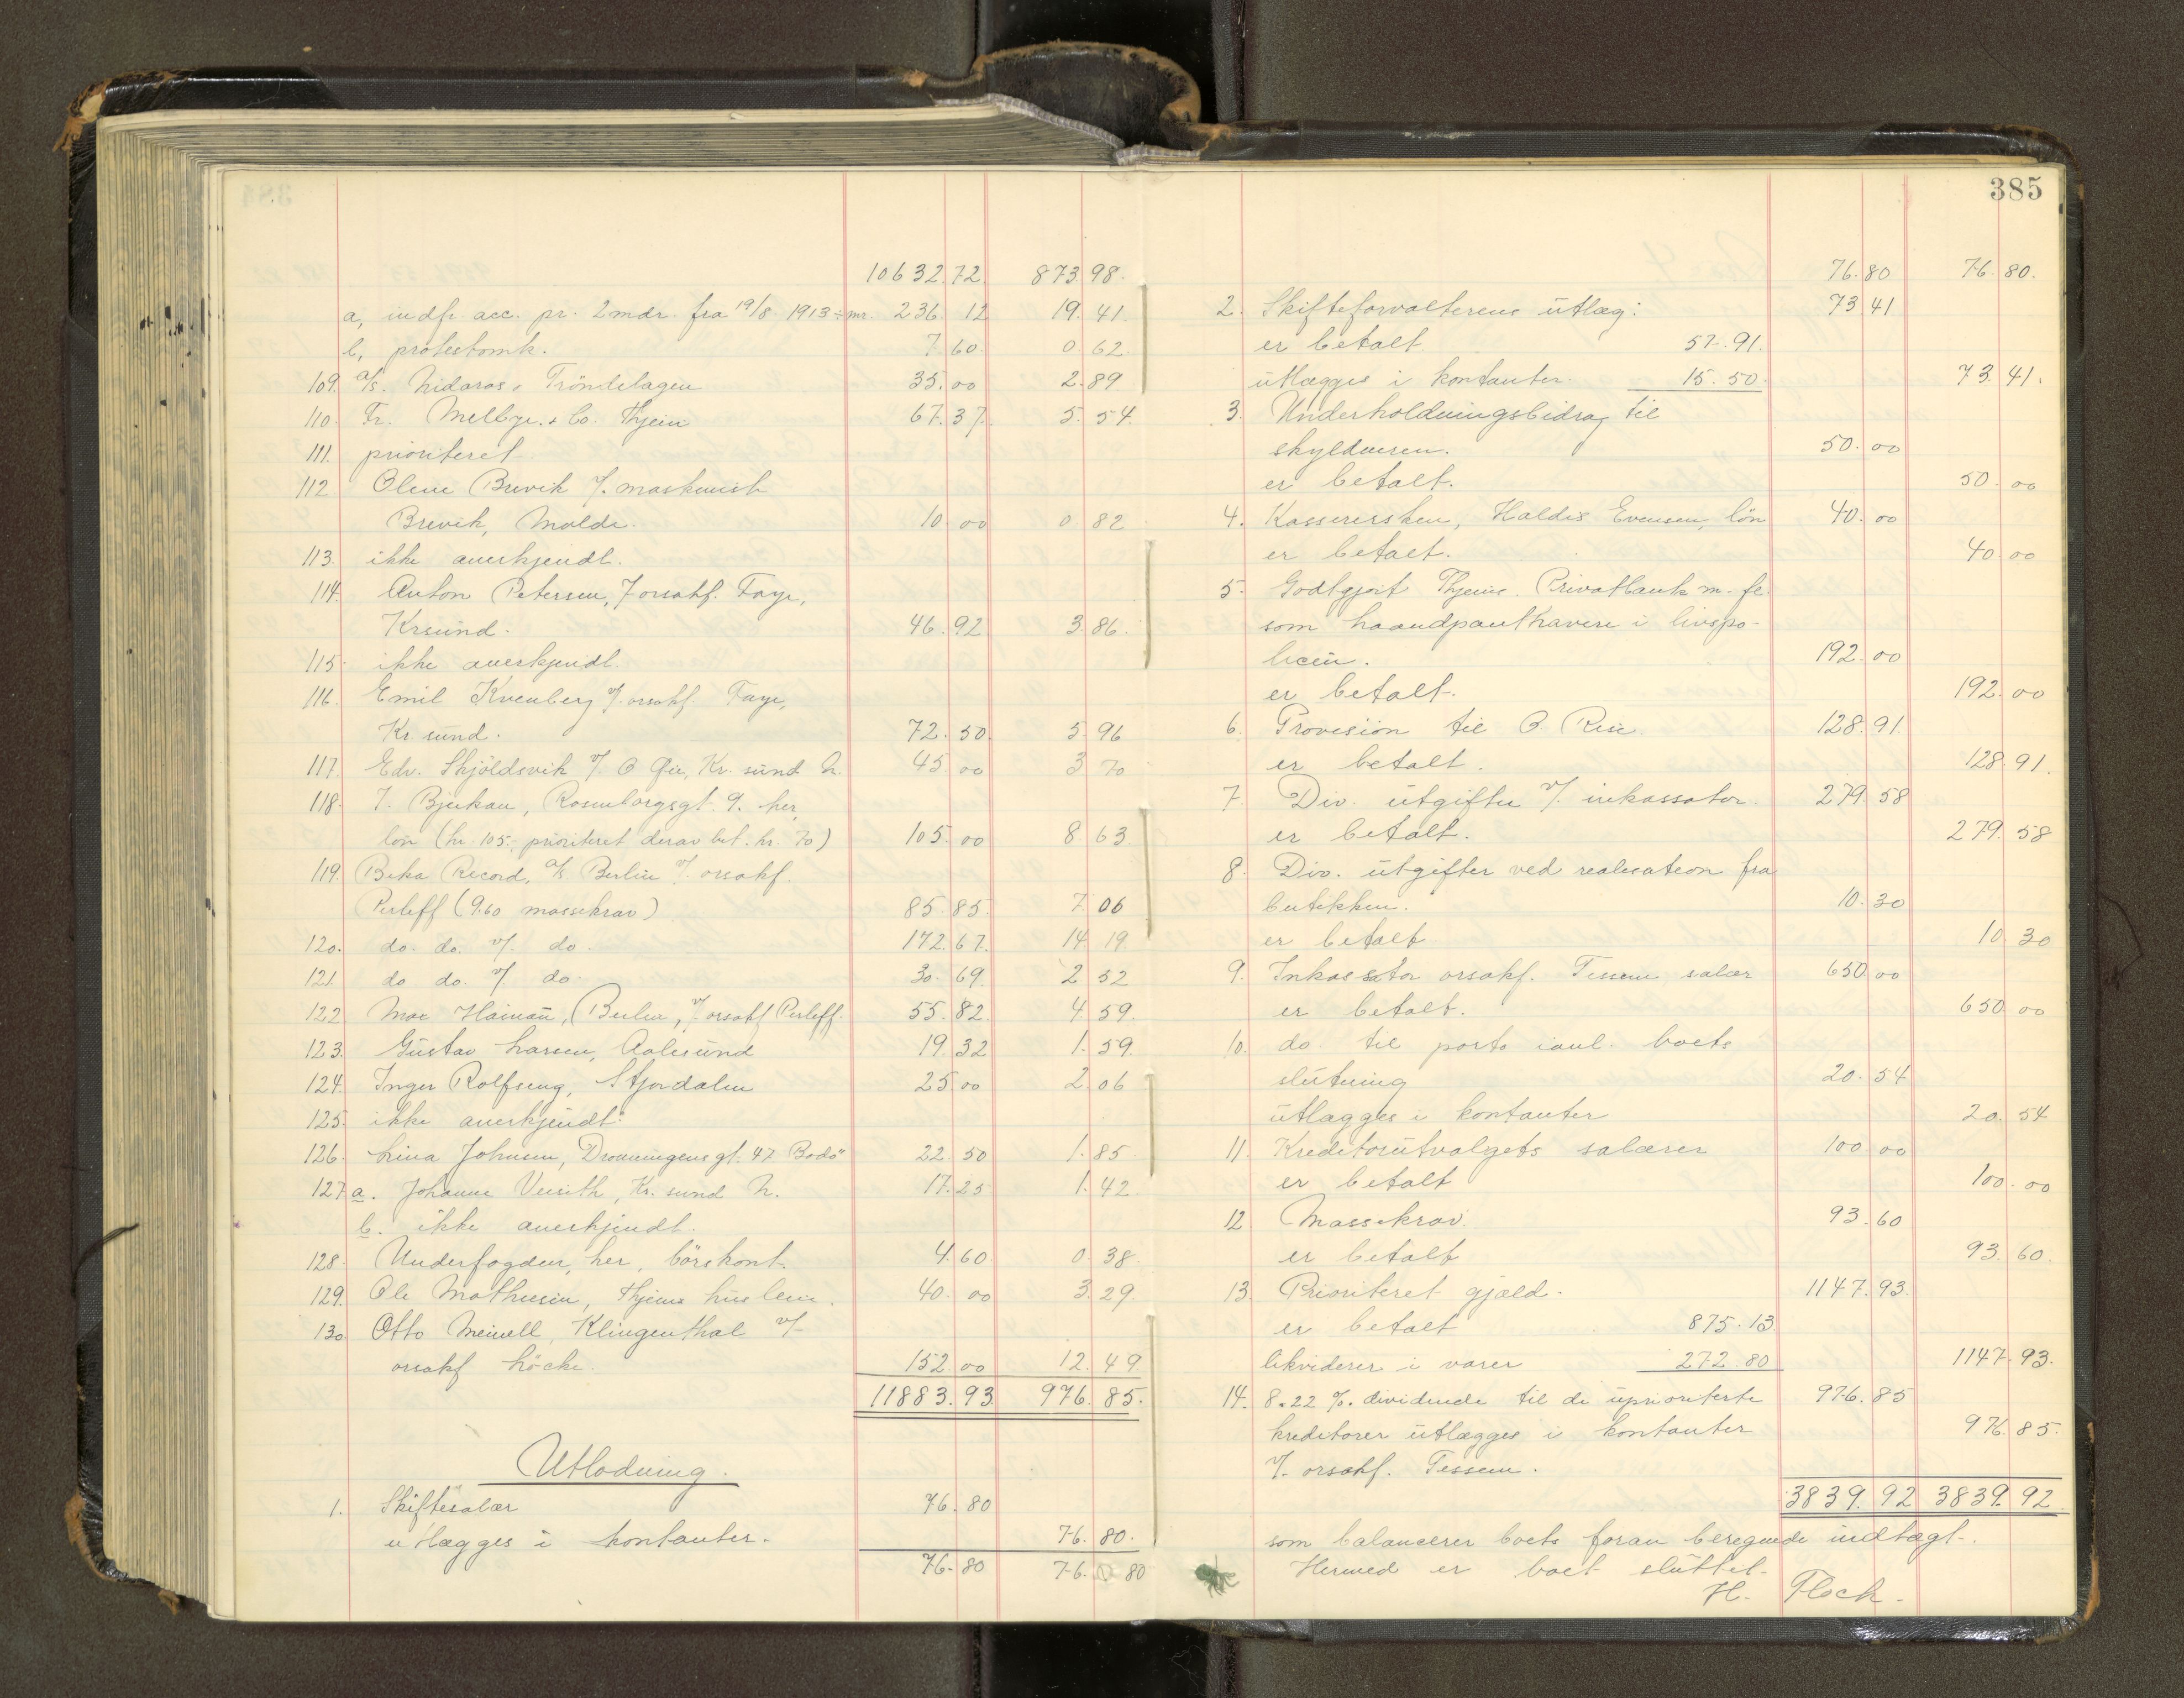 10632.72 873.98.
a, indfr. acc. pr. 2 mdr. fra 19/8 1913 ÷ mr. 236.12 19.41.
b, protestomk. 7.60. 0.62.
109. a/s. Nidaros & Tröndelagen 35.00 2.89
110. Fr. Melbye & Co. Thjem 67.37. 5.54.
111. prioriteret
112 Oline Brevik v/. maskinist
Brevik, Molde. 10.00 0.82
113. ikke anerkjendt.
114. Anton Petersen, v/ orsakf. Faye,
Krsund. 46.92 3.86.
115. ikke anerkjendt.
116. Emil Kvenberg v/. orsakf. Faye,
Kr. sund. 72.50. 5.96
117. Edv. Skjöldsvik v/. O Gie, Kr. sund N. 45.00 3.70
118. J. Bjerkan, Rosenborgsgt. 9. her,
lön (kr. 105.- prioriteret derav bet. kr. 70) 105.00 8.63
119. Beka Record, a/s Berlin v/. orsakf.
Perleff (9.60 massekrav) 85.85. 7.06
120. do. do. v/. do. 172.67. 14.19
121. do do. v/. do. 30.69. 2.52
122 Max Hainau, Berlin, v/. orsakf Perleff. 55.82. 4.59.
123. Gustav Larsen, Aalesund 19.32 1.59.
124. Inger Rolfseng, Stjordalen 25.00 2.06
125. ikke anerkjendt.
126. Lina Johnsen, Dronningensgt. 47 Bodö 22.50 1.85
127 a. Johanne Verseth, Kr. sund N. 17.25 1.42
b. ikke anerkjendt.
128. Underfogden, her, börskont. 4.60 0.38.
129. Ole Mathiesen, Thjems huslein. 40.00 3.29
130 Otto Meinell, Klingenthal v/-
orsakf Löcke. 152.00 12.49
11883.93 976.85.
Utlodning.
1. Skiftesalær 76.80
utlægges i kontanter. 76.80.
76.80 76.80
385
76.80 76.80.
2. Skifteforvalterens utlæg: 73.41
er betalt 57.91.
utlægges i kontanter. 15.50. 73.41.
3. Underholdningsbidrag til
skyldneren. 50.00
er betalt. 50.00
4. Kassersken, Haldis Evensen, lön 40.00
er betalt. 40.00
5. Godtgjort Thjems. Privatbank m. fl.
som haandpanthavere i livspo-
licen. 192.00
er betalt. 192.00
6. Provision til O. Risе 128.91.
er betalt. 128.91.
7. Div. utgifter v/. inkassator. 279.58
er betalt. 279.58
8. Div. utgifter ved realisation fra
butikken. 10.30
er betalt 10.30
9. Inkassator orsakf. Tessem salær 650.00
er betalt. 650.00
10. do. til porto ianl. boets
slutning 20.54
utlægges i kontanter 20.54
11. Kreditorutvalgets salærer 100.00
er betalt 100.00
12 Massekrav. 93.60
er betalt 93.60.
13. Prioriteret gjæld. 1147.93.
er betalt 875.13
likviderer i varer 272.80 1147.93.
14. 8.22 %. dividende til de uprioriterte 976.85
kreditorer utlægges i kontanter 976.85.
v/. orsakf. Tessem.
3839.92 3839.92
som balancerer boets foran beregnede indtægt.
Hermed er boet sluttet.
H. Flock.